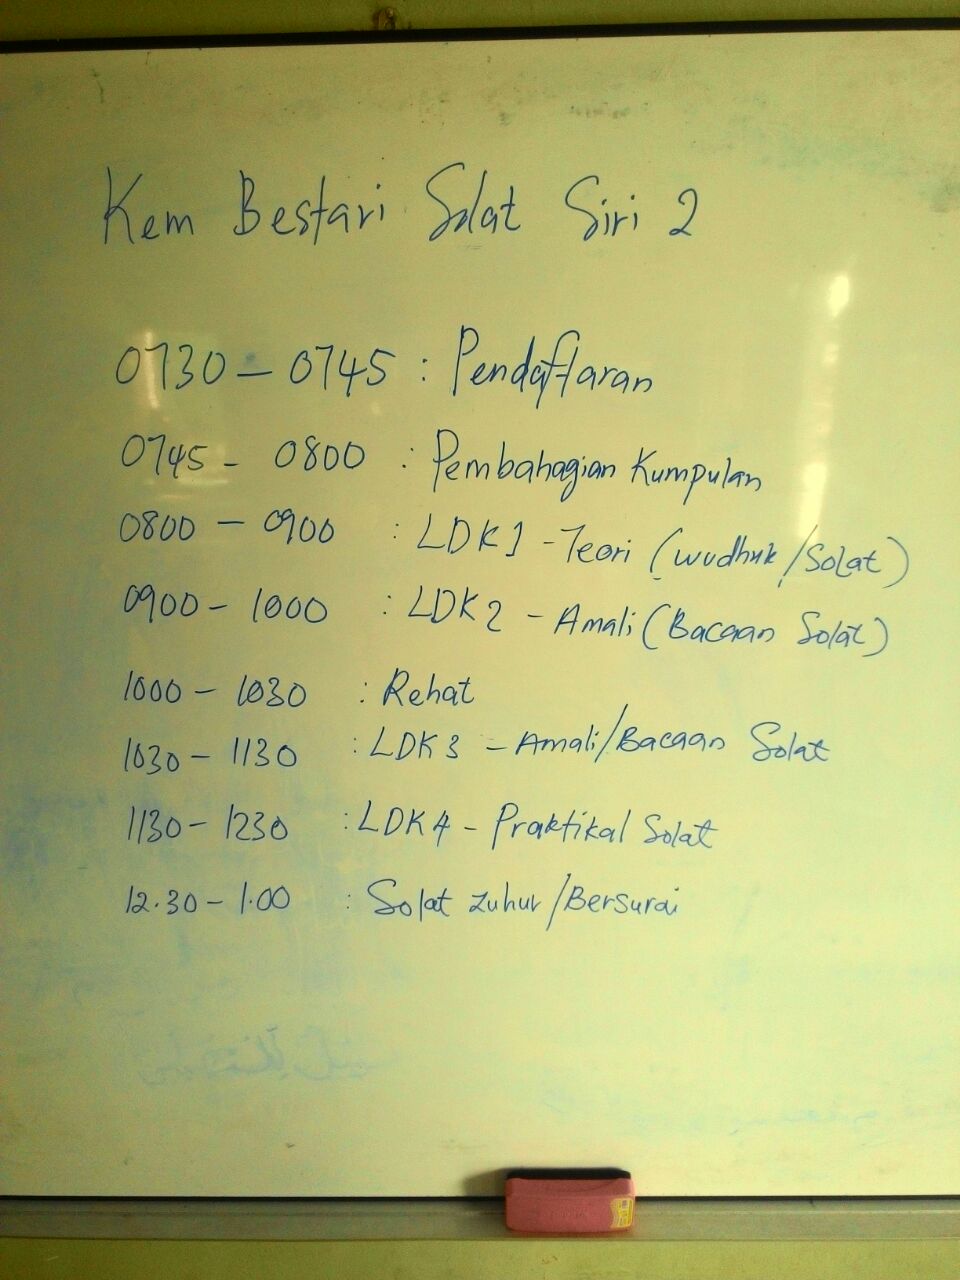 Kem Bestari Solat Siri 2
0730 – 0745 : Pendaftaran
0745 – 0800 : Pembahagian Kumpulan
0800 – 0900 : LDK1 – Teori (wudhuk/Solat)
0900 – 1000 : LDK2 – Amali (Bacaan Solat)
1000 – 1030 : Rehat
1030 – 1130 : LDK3 – Amali/Bacaan Solat
1130 – 1230 : LDK4 – Praktikal Solat
12.30 – 1.00 : Solat Zuhur/Bersurai